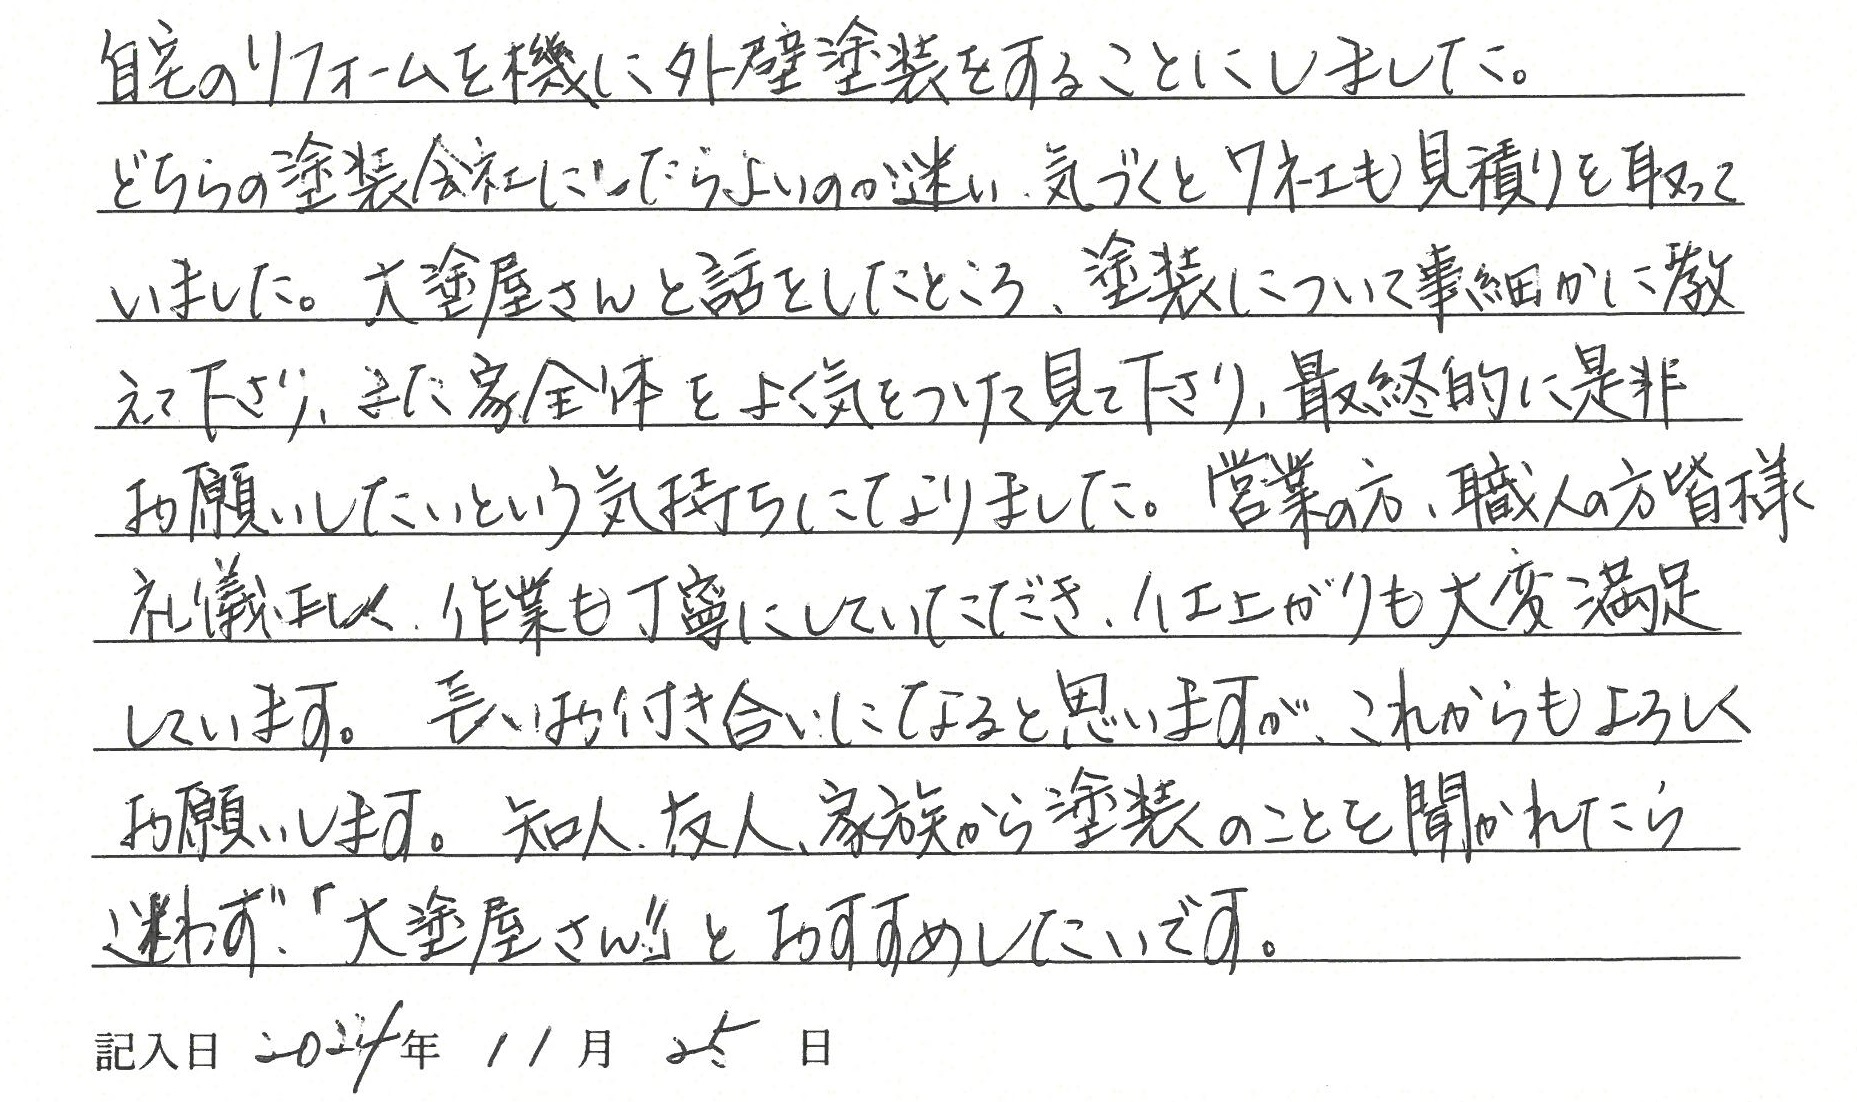 自宅のリフォームを機に外壁塗装をすることにしました。
どちらの塗装会社にしたらよいのか迷い、気づくと7社も見積りを取って
いました。大塗屋さんと話をしたところ、塗装について事細かに教
えて下さり、また家全体をよく気をつけて見て下さり、最終的に是非
お願いしたいという気持ちになりました。営業の方、職人の方皆様
礼儀正しく、作業も丁寧にしていただき、仕上がりも大変満足
しています。長いお付き合いになると思いますが、これからもよろしく
お願いします。知人、友人、家族から塗装のことを聞かれたら
迷わず、「大塗屋さん!!」とおすすめしたいです。
記入日 2024年 11月 25日